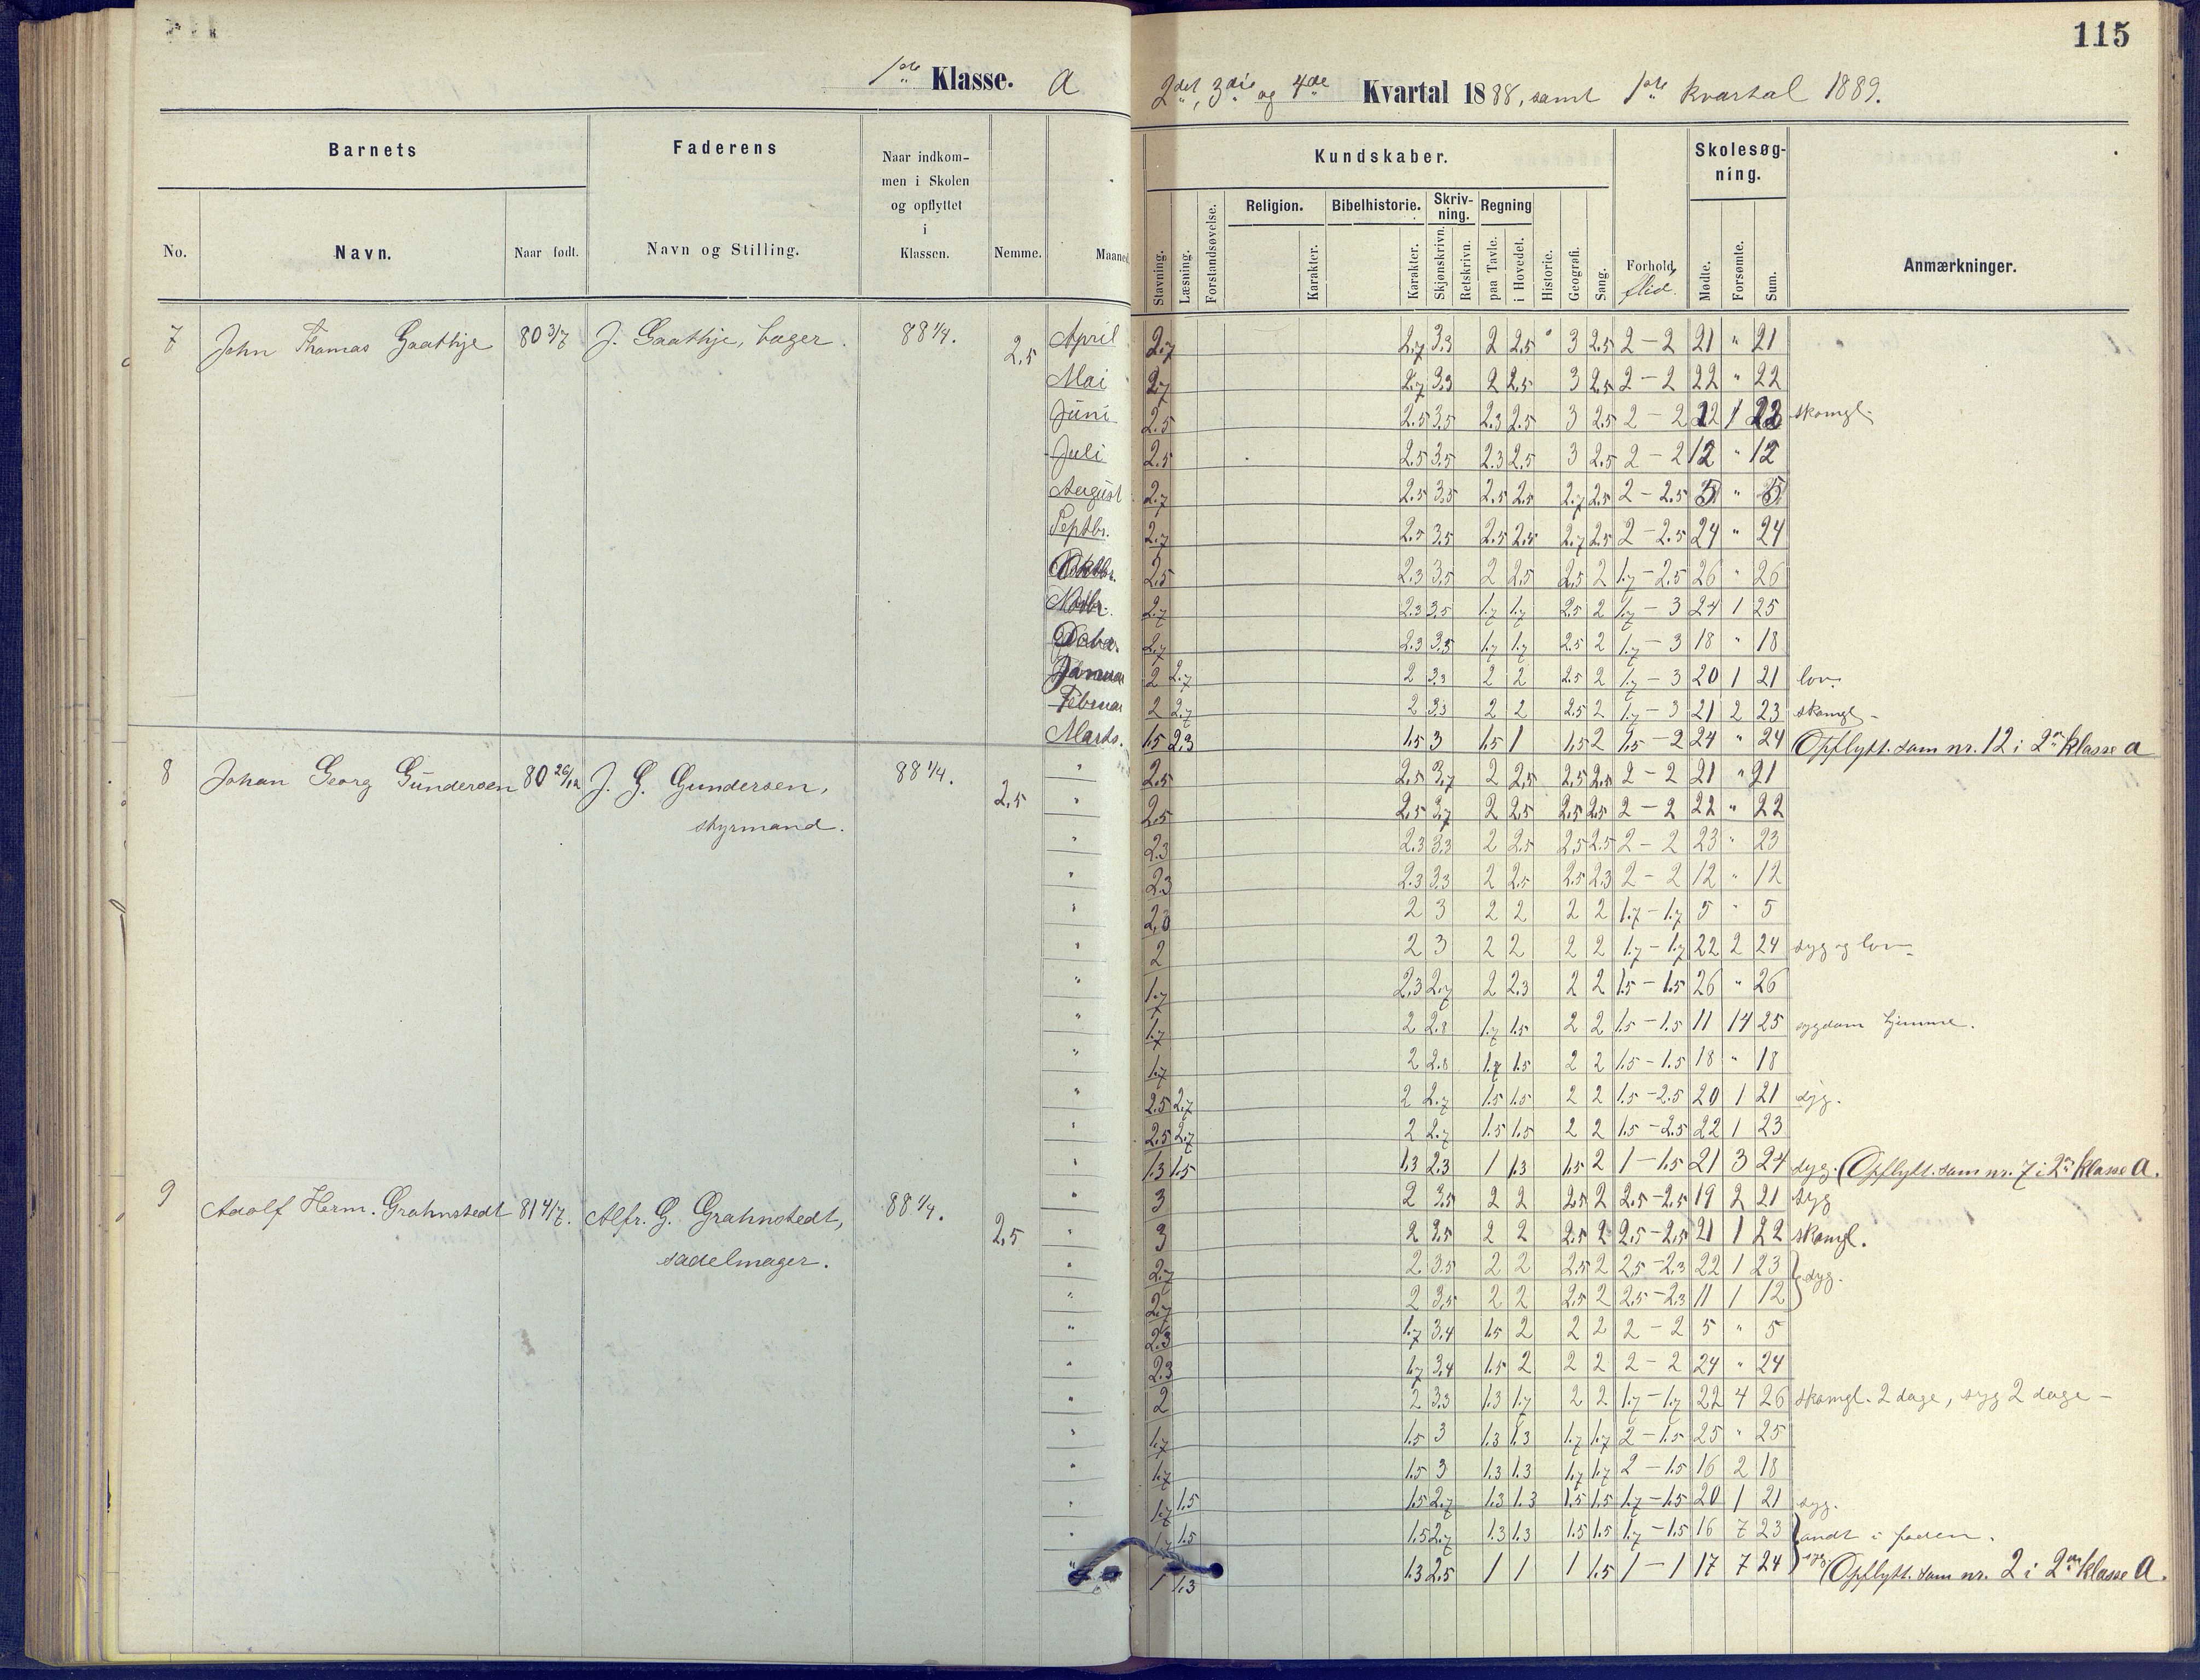 115
1ste Klasse. A
2det, 3die og 4de Kvartal 1888, samt 1ste kvartal 1889.
Barnets Faderens Naar indkommen i Skolen og opflyttet i Klassen. Nemme. Maaned
No. Navn. Naar født. Navn og Stilling.
Kundskaber. Skolesøgning.
Stavning. Læsning. Forstandsøvelse. Religion. Karakter. Bibelhistorie. Karakter. Skrivning. Skjønskrivn. Retskrivn. Regning paa Tavle. i Hovedet. Historie. Geografi. Sang. Forhold flid. Mødte. Forsømte. Sum. Anmærkninger.
7 John Thomas Gaathje 80 3/7 J. Gaathje, bager. 88 1/4. 2,5 April 2.7 2.7 3.3 2 2.5 3 2.5 2 – 2 21 " 21
Mai 2.7 2.7 3.3 2 2.5 3 2.5 2 – 2 22 " 22
Juni 2.5 2.5 3.5 2.3 2.5 3 2.5 2 – 2 22 1 23 skomgl.
Juli 2.5 2.5 3.5 2.3 2.5 3 2.5 2 – 2 12 " 12
August 2.7 2.5 3.5 2.5 2.5 2.7 2.5 2 – 2.5 5 " 5
Septbr. 2.7 2.5 3.5 2.5 2.5 2.7 2.5 2 – 2.5 24 " 24
Oktbr. 2.5 2.3 3.5 2 2.5 2.5 2 1.7 – 2.5 26 " 26
Novbr. 2.7 2.3 3.5 1.7 1.7 2.5 2 1.7 – 3 24 1 25
2.7 2.3 3.5 1.7 1.7 2.5 2 1.7 – 3 18 " 18
Januar 2 2.7 2 3.3 2 2 2.5 2 1.7 – 3 20 1 21 lov.
Februar 2 2.7 2 3.3 2 2 2.5 2 1.7 – 3 21 2 23 skomgl
Marts. 1.5 2.3 1.5 3 1.5 1 1.5 2 1.5 – 2 24 " 24 Opflytt. som nr. 12 i 2en klasse A
8 Johan Georg Gundersen 80 26/12 J. G. Gundersen, 88 1/4. 2,5 " 2.5 2.5 3.7 2 2.5 2.5 2.5 2 – 2 21 " 21
styrmand. " 2.5 2.5 3.7 2 2.5 2.5 2.5 2 – 2 22 " 22
" 2.3 2.3 3.3 2 2.5 2.5 2.5 2 – 2 23 " 23
" 2.3 2.3 3.3 2 2.5 2.5 2.3 2 – 2 12 " 12
" 2.3 2 3 2 2 2 2 1.7 – 1.7 5 " 5
" 2 2 3 2 2 2 2 1.7 – 1.7 22 2 24 syg og lov
" 1.7 2.3 2.7 2 2.3 2 2 1.5 – 1.5 26 " 26
" 1.7 2 2.8 1.7 1.5 2 2 1.5 – 1.5 11 14 25 sygdom hjemme.
" 1.7 2 2.8 1.7 1.5 2 2 1.5 – 1.5 18 " 18
" 2.5 2.7 2 2.7 1.5 1.5 2 2 1.5 – 2.5 20 1 21 syg.
" 2.5 2.7 2 2.7 1.5 1.5 2 2 1.5 – 2.5 22 1 23
" 1.3 1.5 1.3 2.3 1 1.3 1.5 2 1 – 1.5 21 3 24 syg. (Opflytt. som nr. 7 i 2en klasse A.
9 Adolf Herm. Grahnstedt 81 4/7. Alfr. G. Grahnstedt, 88 1/4. 2,5 " 3 2 3.5 2 2 2.5 2 2.5 – 2.5 19 2 21 syg
sadelmager. " 3 2 3.5 2 2 2.5 2 2.5 – 2.5 21 1 22 skomgl.
" 2.7 2 3.5 2 2 2.5 2 2.5 – 2.3 22 1 23 } syg.
" 2.7 2 3.5 2 2 2.5 2 2.5 – 2.3 11 1 12
" 2.3 1.7 3.4 1.5 2 2 2 2 – 2 5 " 5
" 2.3 1.7 3.4 1.5 2 2 2 2 – 2 24 " 24
" 2 2 3.3 1.3 1.7 2 2 1.7 – 1.7 22 4 26 skomgl. 2 dage, syg 2 dage –
" 1.7 1.5 3 1.3 1.3 1.7 1.7 2 – 1.5 25 " 25
" 1.7 1.5 3 1.3 1.3 1.7 1.7 2 – 1.5 16 2 18
" 1.7 1.5 1.5 2.7 1.3 1.3 1.5 1.5 1.7 – 1.5 20 1 21 syg.
" 1.7 1.5 1.5 2.7 1.3 1.3 1.5 1.5 1.7 – 1.5 16 7 23 } ondt i foden.
" 1 1.3 1.3 2.5 1 1 1 1.5 1 – 1 17 7 24 syg. (Opflytt. som nr. 2 i 2en klasse A.